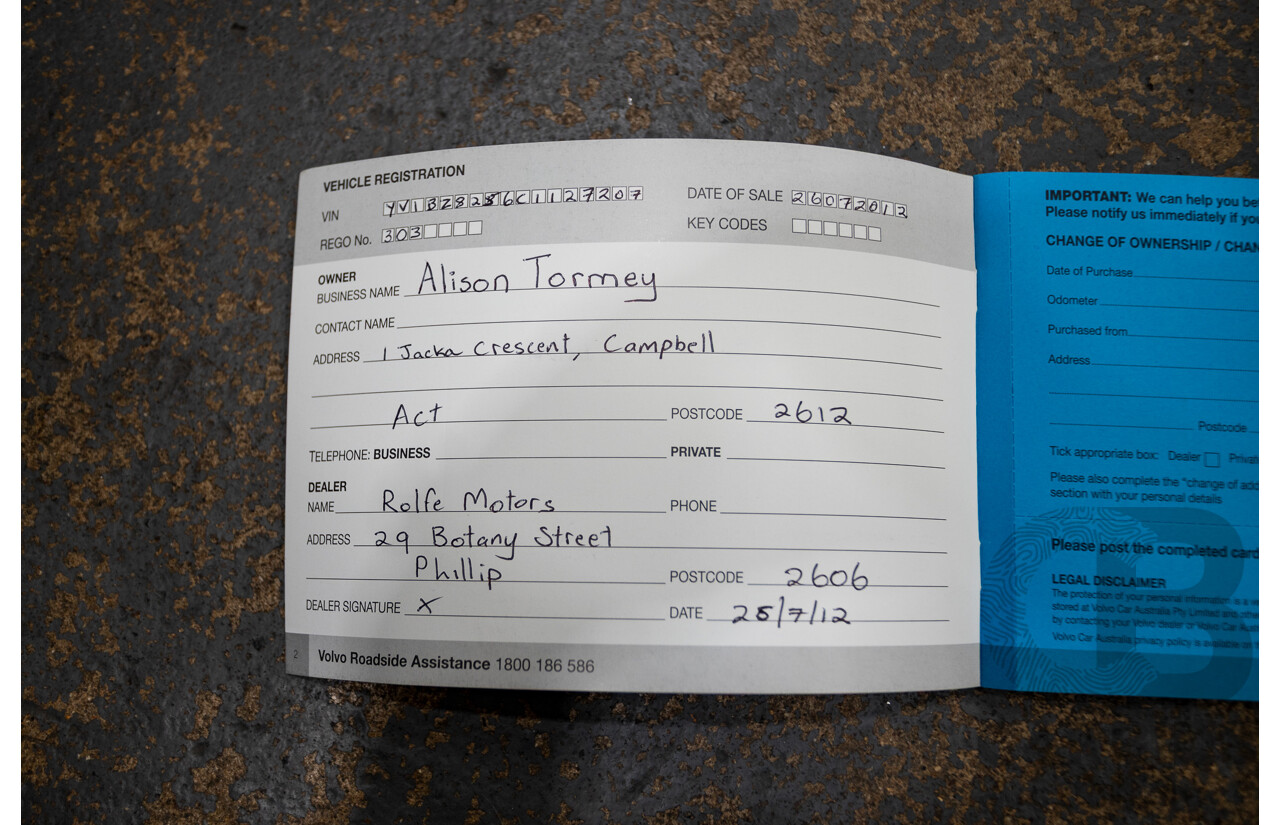 VEHICLE REGISTRATION
VIN YV1BZ8256C1127207
DATE OF SALE 26072012
REGO No. 303
KEY CODES
OWNER
BUSINESS NAME Alison Tormey
CONTACT NAME
ADDRESS 1 Jacka Crescent, Campbell
Act POSTCODE 2612
TELEPHONE: BUSINESS PRIVATE
DEALER
NAME Rolfe Motors PHONE
ADDRESS 29 Botany Street
Phillip POSTCODE 2606
DEALER SIGNATURE X DATE 25/7/12
2 Volvo Roadside Assistance 1800 186 586
IMPORTANT: We can help you be
Please notify us immediately if you
CHANGE OF OWNERSHIP / CHAN
Date of Purchase
Odometer
Purchased from
Address
Postcode
Tick appropriate box: Dealer Private
Please also complete the "change of add
section with your personal details
Please post the completed card
LEGAL DISCLAIMER
The protection of your personal information is a
stored at Volvo Car Australia Pty Limited and
by contacting your Volvo dealer or Volvo Car
Volvo Car Australia privacy policy is available on